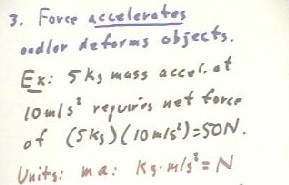 3. Force accelerates
and/or deforms objects.
Ex: 5 kg mass accel. at
10 m/s² requires net force
of (5kg)(10 m/s²)=50N.
Units: ma: kg·m/s² = N